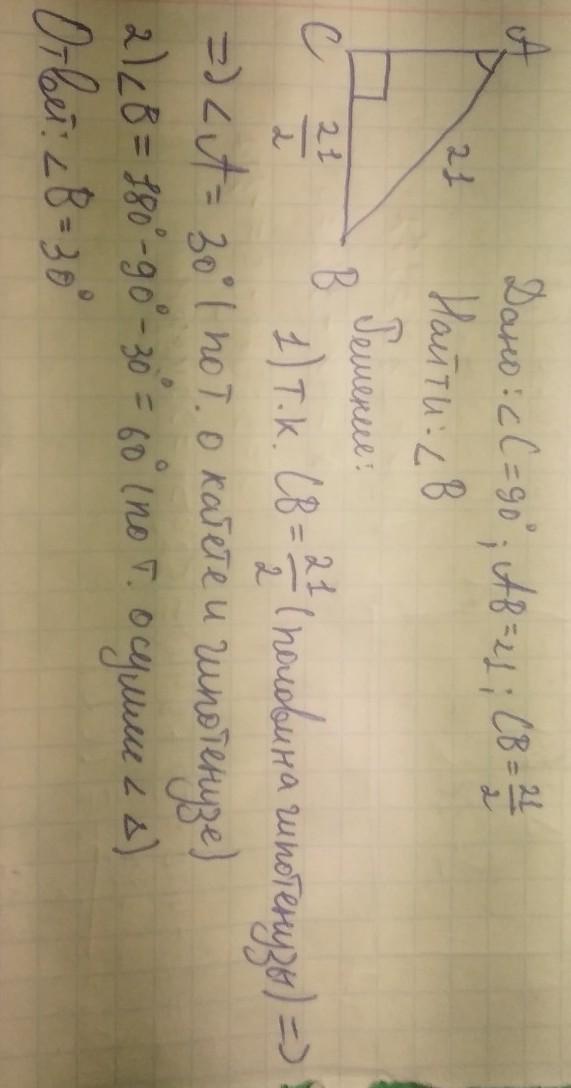 A
21
C
21/2
B
Дано: ∠C = 90°; AB = 21; CB = 21/2
Найти: ∠B
Решение:
1) т.к. CB = 21/2 (половина гипотенузы) =>
=> ∠A = 30° (по т. о катете и гипотенузе)
2) ∠B = 180° - 90° - 30° = 60° (по т. о сумме ∠ Δ)
Ответ: ∠B = 30°